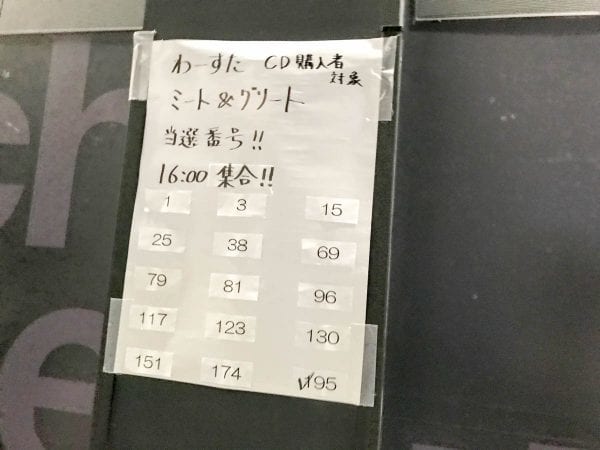 わーすた CD購入者
対象
ミート&グリート
当選番号!!
16:00 集合!!
1 3 15
25 38 69
79 81 96
117 123 130
151 174 195